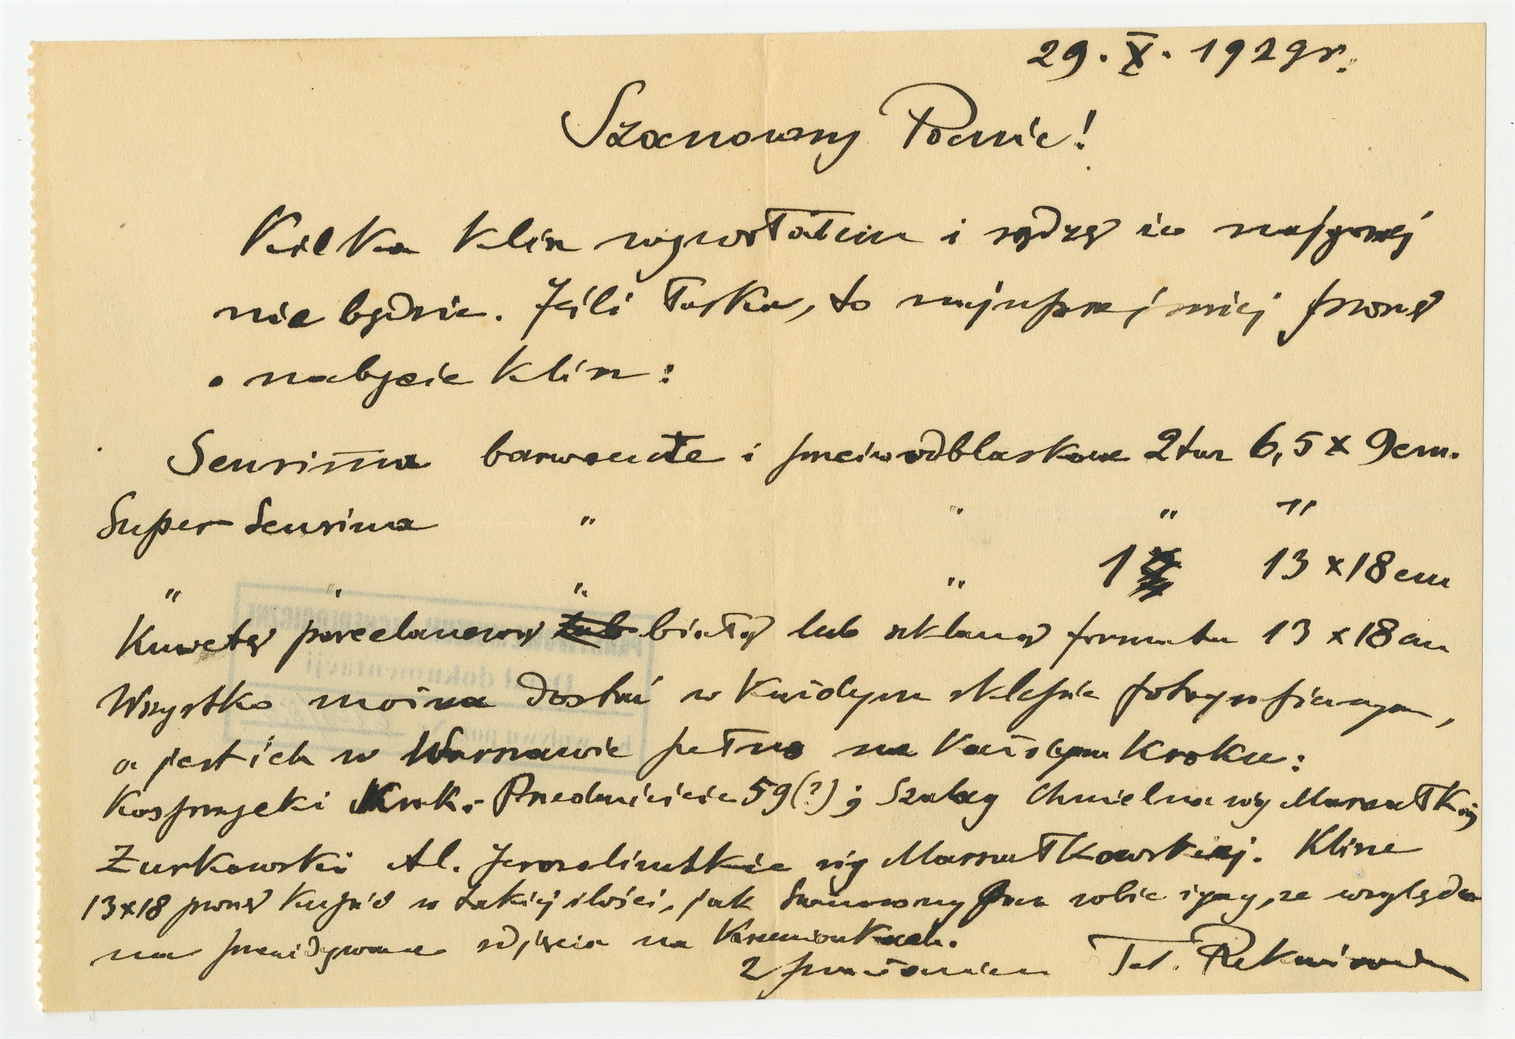 29.X.1929 r.
Szanowny Panie!
Kilka klisz wywołałem i sądzę że najgorzej
nie będzie. Jeśli łaska, to najuprzejmiej proszę
o nabycie klisz:
Sensima barwoczułe i przeciwodblaskowe 2 tuz 6,5 x 9 cm.
Super Sensima " " " "
" " " " 1 13 x 18 cm
Kuwetę porcelanową białą lub szklaną formatu 13 x 18 cm
Wszystko można dostać w każdym sklepie fotograficznym,
a jest ich w Warszawie pełno na każdym kroku:
Kosprzęcki Krak. Przedmieście 59(?) ; Szalay Chmielna róg Marszałk.
Żurkowski Al. Jerozolimskie róg Marszałkowskiej. Klisze
13x18 proszę kupić w takiej ilości, jak Szanowny Pan sobie życzy, ze względu
na przewidywane zdjęcia na Krzemionkach.
Z poważaniem